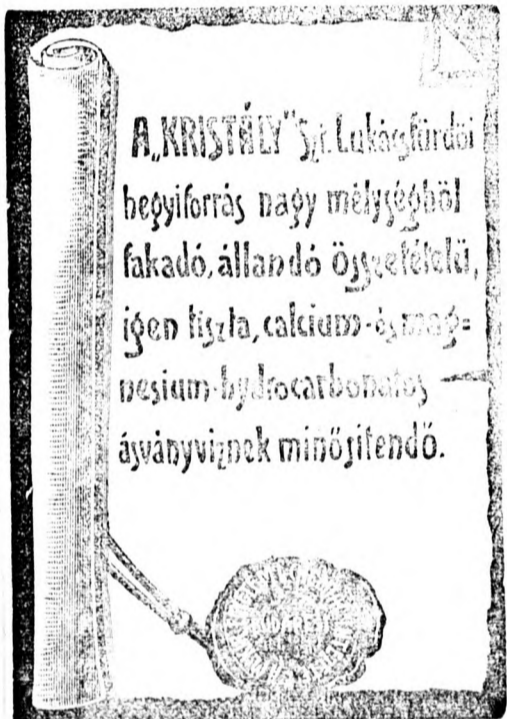 A „KRISTÁLY” Szt. Lukácsfürdői
hegyiforrás nagy mélységből
fakadó, állandó összetételű,
igen tiszta, calcium- és mag=
nesium-hydrocarbonatos
ásványviznek minősítendő.